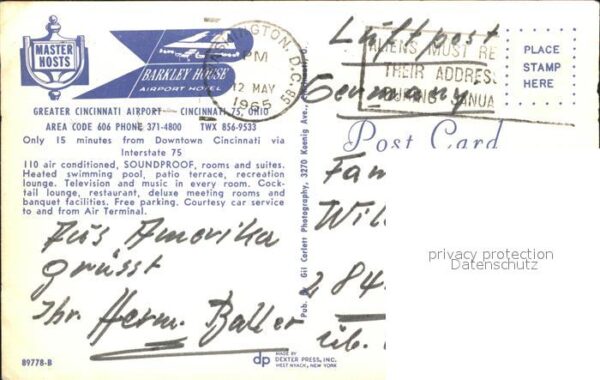 MASTER
HOSTS
BARKLEY HOUSE
AIRPORT HOTEL
GREATER CINCINNATI AIRPORT CINCINNATI 75, OHIO
AREA CODE 606 PHONE 371-4800 TWX 856-9533
Only 15 minutes from Downtown Cincinnati via
Interstate 75
110 air conditioned, SOUNDPROOF, rooms and suites.
Heated swimming pool, patio terrace, recreation
lounge. Television and music in every room. Cock-
tail lounge, restaurant, deluxe meeting rooms and
banquet facilities. Free parking. Courtesy car service
to and from Air Terminal.
Aus Amerika
grüsst
Ihr. Herm.
89778-B
WASHINGTON, D.C.
PM
12 MAY
1965
Pub. by Gil Corlett Photography, 3270 Koenig Ave.,
dp
MADE BY
DEXTER PRESS, INC.
WEST NYACK, NEW YORK
Luftpost
Germany
ALIENS MUST RE
THEIR ADDRESS
DURING JANUA
PLACE
STAMP
HERE
Post Card
Fam
Wil
284
üb.
privacy protection
Datenschutz